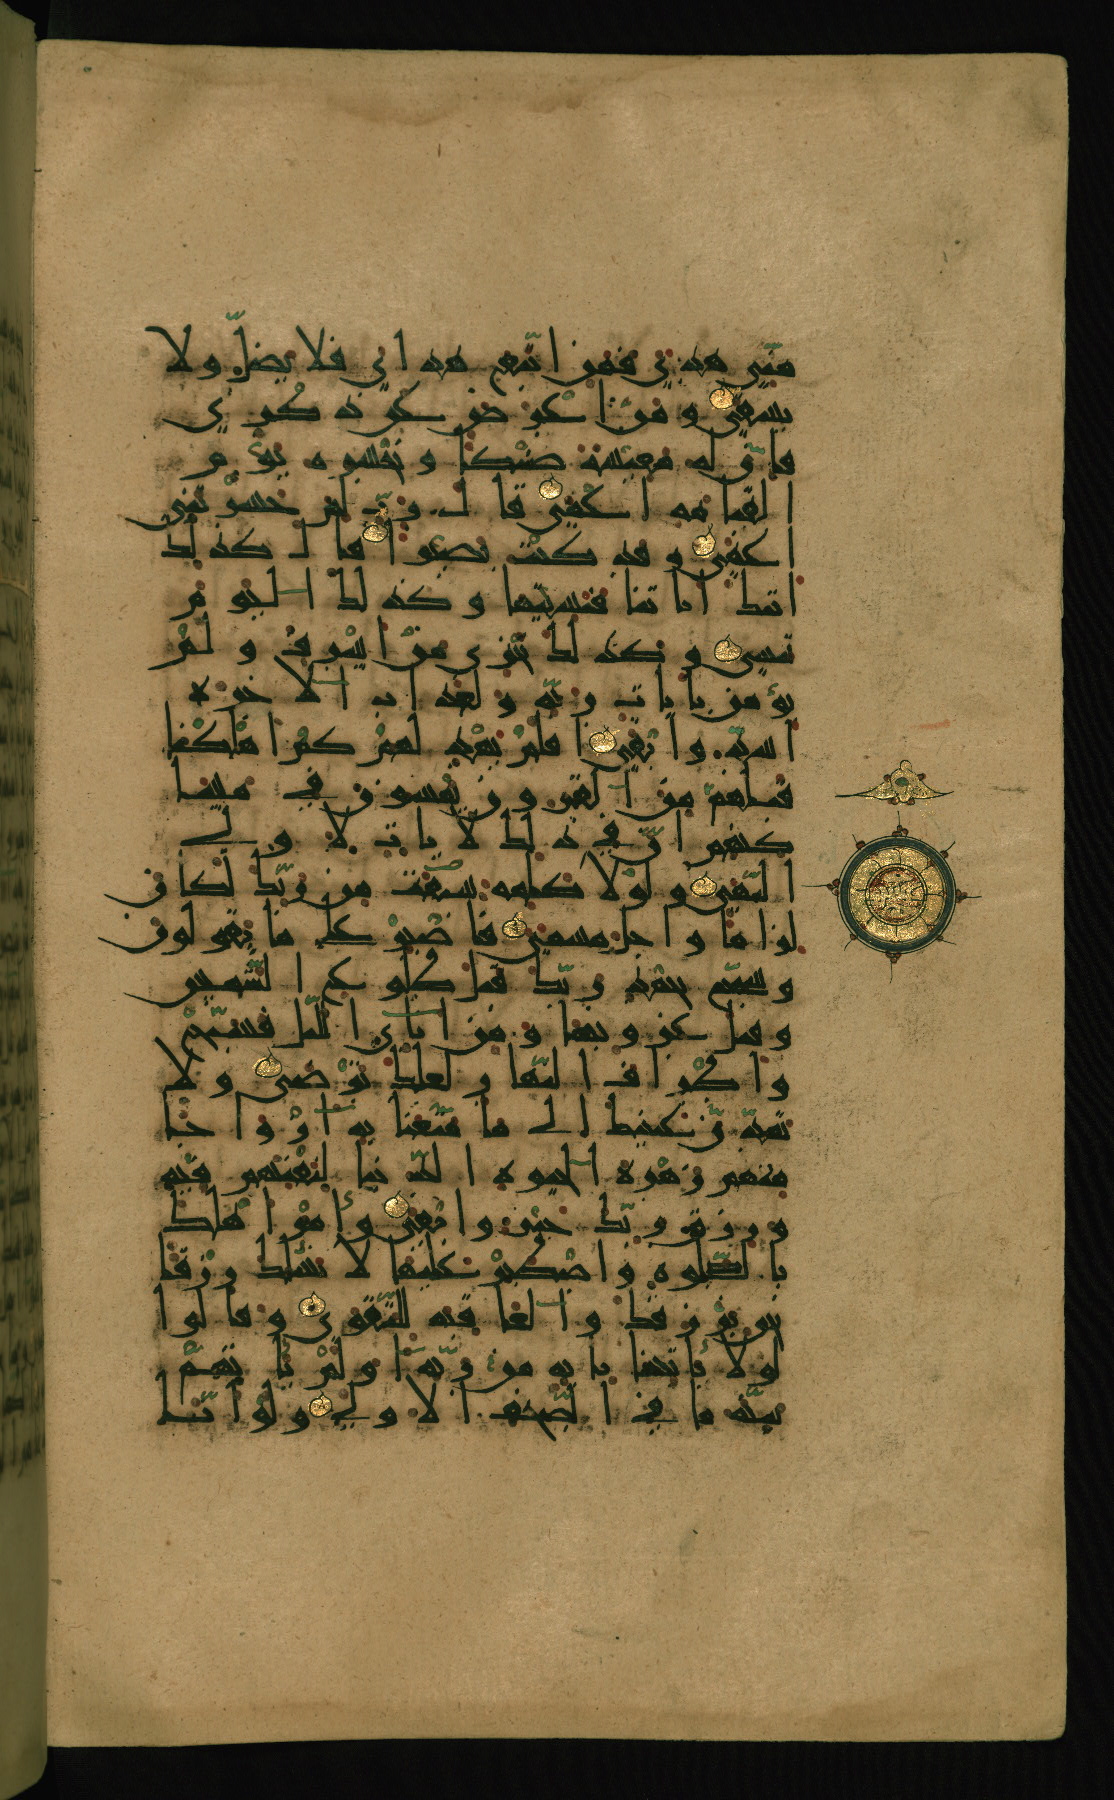 منّى هدى فمن اتّبع هداى فلا يضلّ ولا
يشقى ومن اعرض عن ذكرى
فانّ له معيشة ضنكا ونحشره يوم
القيامة اعمى قال ربّ لم حشرتنى
اعمى وقد كنت بصيرا قال كذلك
اتتك اياتنا فنسيتها وكذلك اليوم
تنسى وكذلك نجزى من اسرف ولم
يؤمن بايات ربّه ولعذاب الاخرة
اشدّ وابقى افلم يهد لهم كم اهلكنا
قبلهم من القرون يمشون فى مسا
كنهم انّ فى ذلك لايات لاولى
النّهى ولولا كلمة سبقت من ربّك لكان
لزاما واجل مسمى فاصبر على ما يقولون
وسبّح بحمد ربّك قبل طلوع الشّمس
وقبل غروبها ومن اناى الّيل فسبّح
واطراف النّهار لعلّك ترضى ولا
تمدّنّ عينيك الى ما متّعنا به ازواجا
منهم زهرة الحيوة الدّنيا لنفتنهم فيه
ورزق ربّك خير وابقى وأمر اهلك
بالصّلوة واصطبر عليها لا نسئلك رزقا
نحن نرزقك والعاقبة للتّقوى وقالوا
لولا يأتينا باية من ربّه اولم تأتهم
بيّنة ما فى الصّحف الاولى ولو انّا